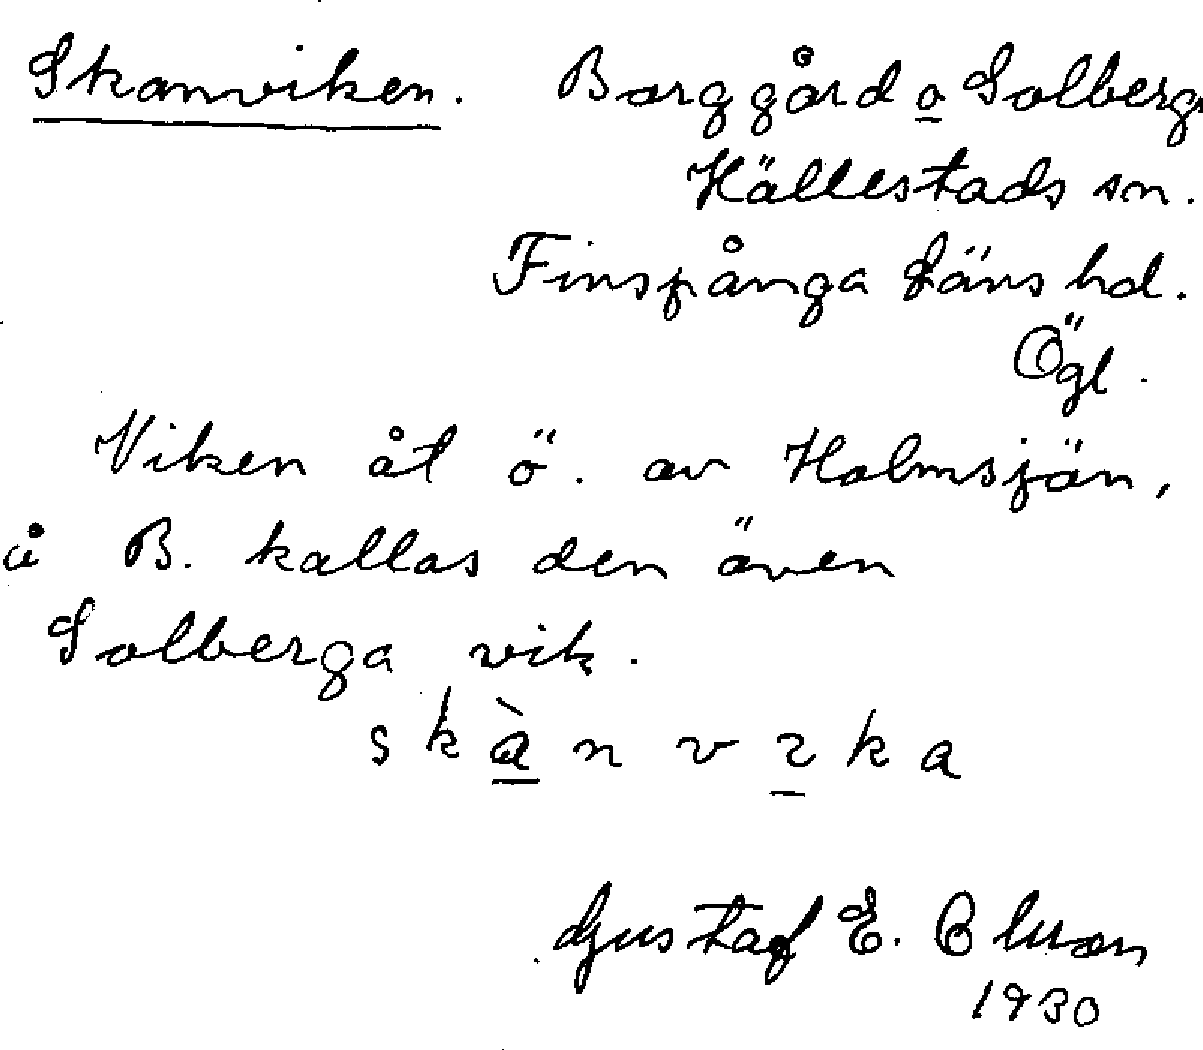 Skanviken. Borggård o Solberg
Hällestads sn.
Finspånga läns hd.
Ögl.
Viken åt ö. av Holmsjön,
å B. kallas den även
Solberga vik.
skànvıka
Gustaf E.
1930